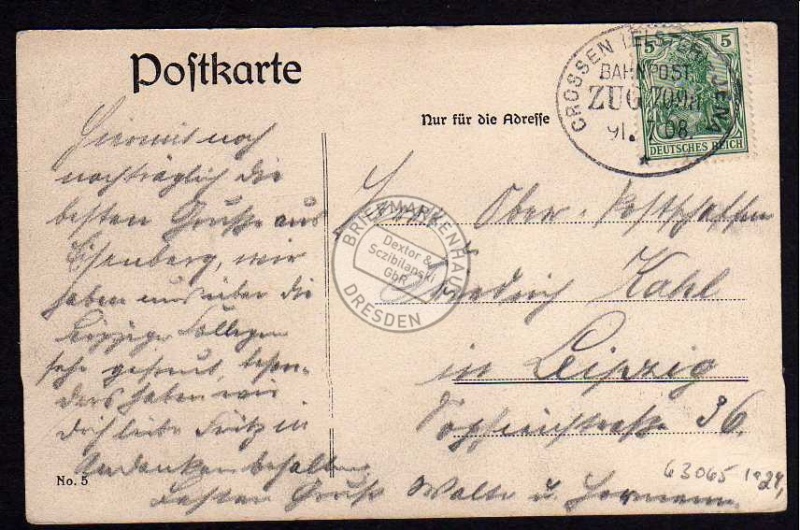 Postkarte
Nur für die Adresse
CROSSEN (ELSTER) JENA
BAHNPOST
ZUG 709a
91. 7.08.
5 5
DEUTSCHES REICH
Hiermit noch
nachträglich die
besten Grüße aus
Eisenberg, wir
haben uns über die
Leipziger Kollegen
sehr gefreut, beson-
ders haben wir
Fritz in
Andenken behalten.
Besten Gruß Walter u. Hermann
Herrn Ober-Postschaffner
Friedrich Kahl
in Leipzig
36.
No. 5
63065
BRIEFMARKENHAUS
Dextor &
Sczibilanski
GbR
DRESDEN